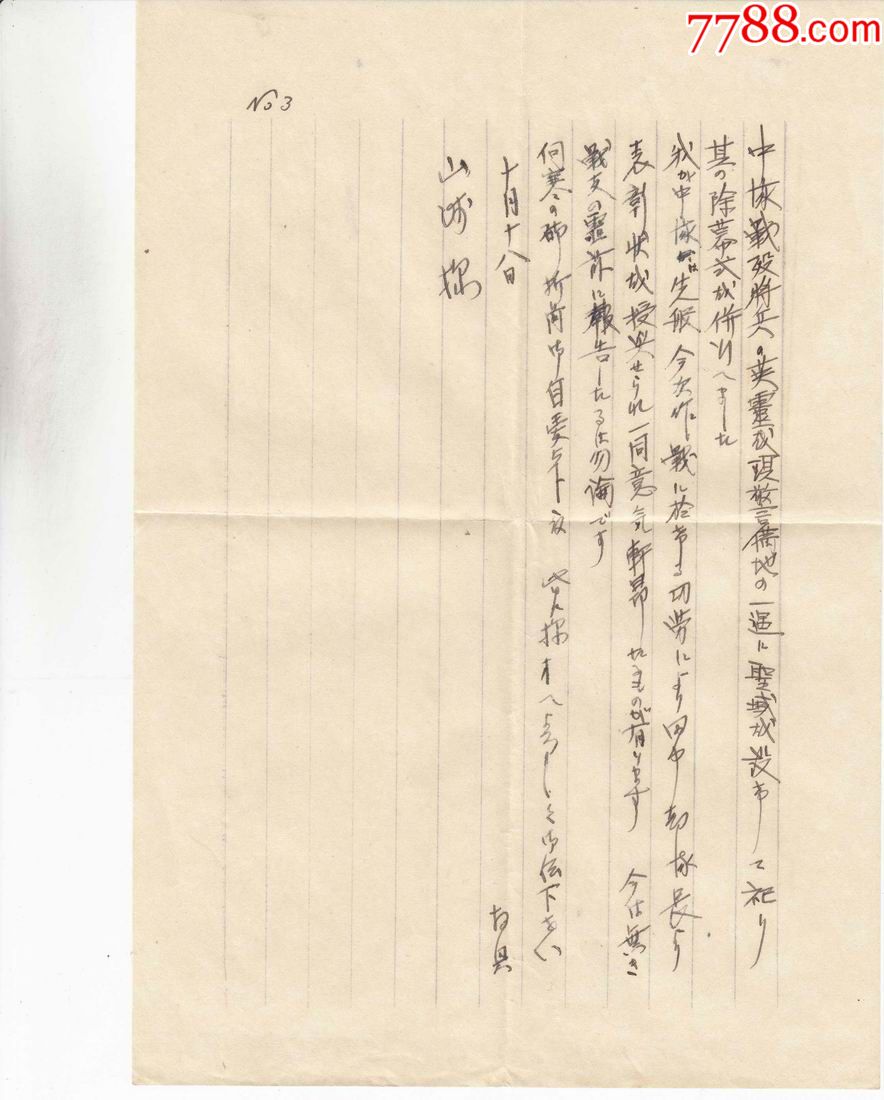 7788.com
No 3
中隊戦殁将兵の英霊を現警備地の一遇に聖域を設けて祀り
其の除幕式を併行へました
我が中隊は先般今次作戦に於ける功労により田中部隊長より
表彰状を授与せられ一同意気軒昂たるものが有ります 今は無き
戦友の霊前に報告したるは勿論です
向寒の砌 折角御自愛下度 皆々様方へよろしく御伝下さい
敬具
十月十八日
山崎様